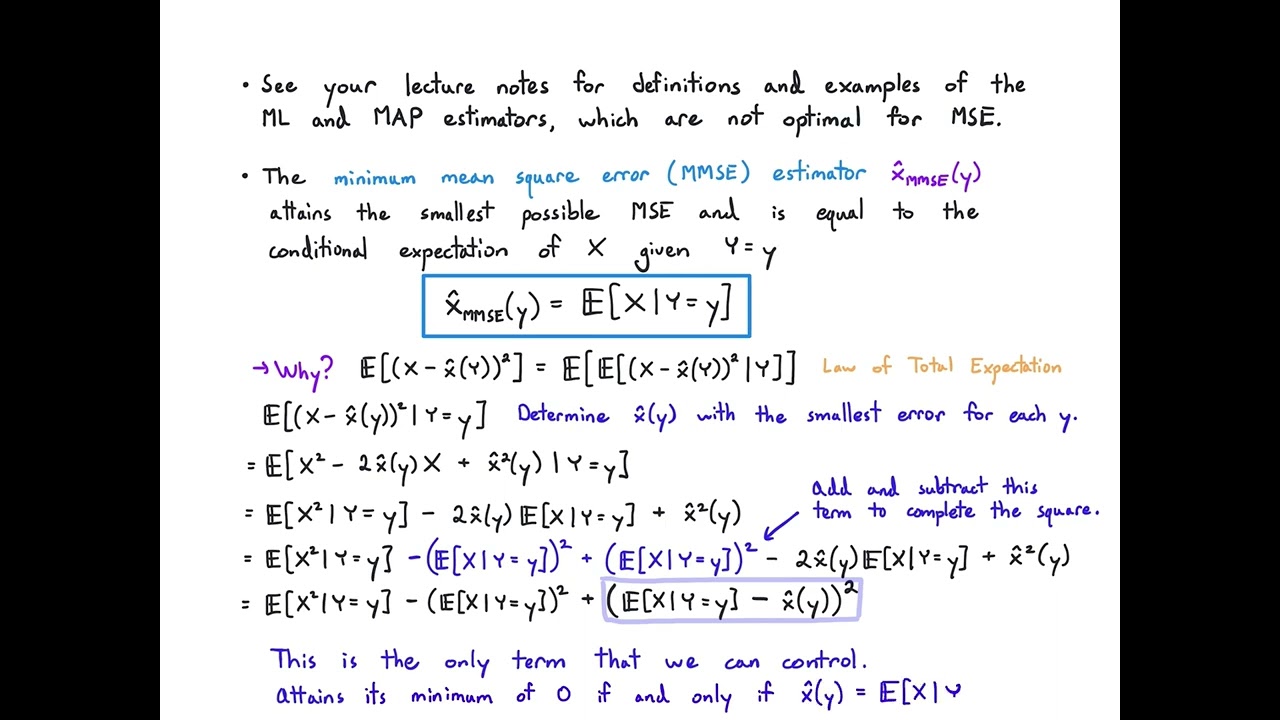 • See your lecture notes for definitions and examples of the
ML and MAP estimators, which are not optimal for MSE.
• The minimum mean square error (MMSE) estimator x̂_MMSE(y)
attains the smallest possible MSE and is equal to the
conditional expectation of X given Y = y
x̂_MMSE(y) = 𝔼[X|Y=y]
→ Why? 𝔼[(X - x̂(Y))²] = 𝔼[𝔼[(X - x̂(Y))²|Y]] Law of Total Expectation
𝔼[(X - x̂(y))²|Y=y] Determine x̂(y) with the smallest error for each y.
= 𝔼[X² - 2x̂(y)X + x̂²(y)|Y=y]
= 𝔼[X²|Y=y] - 2x̂(y)𝔼[X|Y=y] + x̂²(y)
add and subtract this
term to complete the square.
= 𝔼[X²|Y=y] - (𝔼[X|Y=y])² + (𝔼[X|Y=y])² - 2x̂(y)𝔼[X|Y=y] + x̂²(y)
= 𝔼[X²|Y=y] - (𝔼[X|Y=y])² + (𝔼[X|Y=y] - x̂(y))²
This is the only term that we can control.
Attains its minimum of 0 if and only if x̂(y) = 𝔼[X|Y